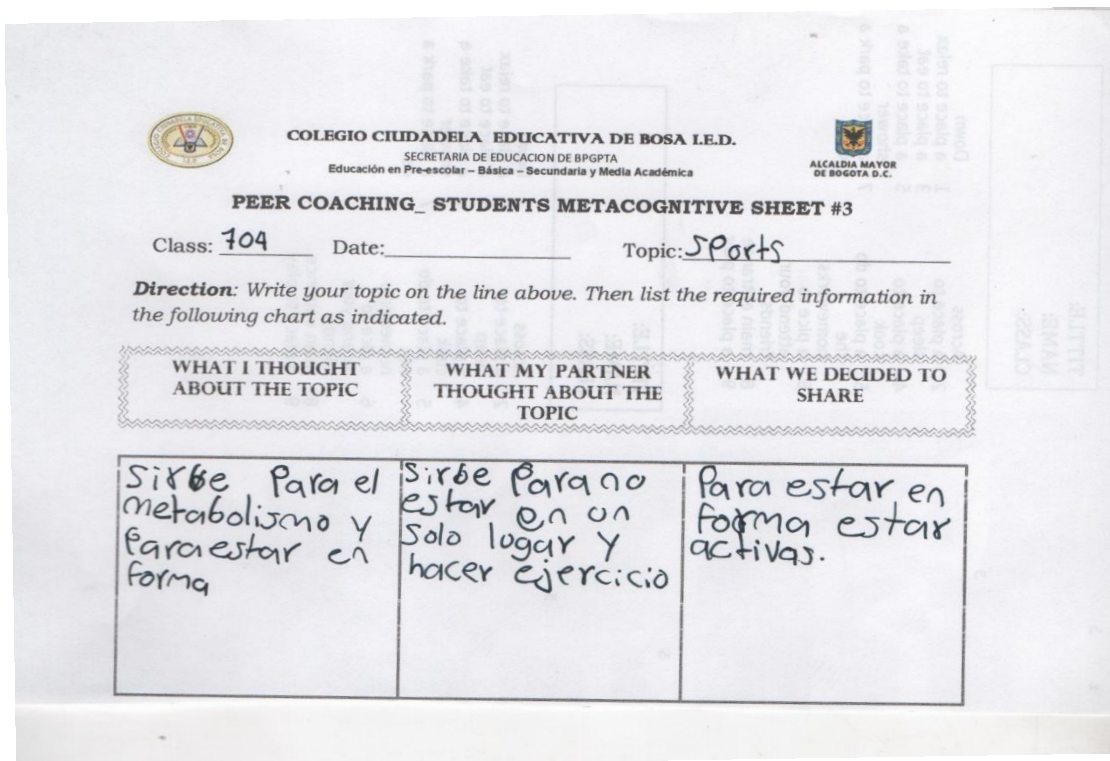 COLEGIO CIUDADELA EDUCATIVA DE BOSA I.E.D.
SECRETARIA DE EDUCACION DE BPGPTA
Educación en Pre-escolar – Básica – Secundaria y Media Académica
ALCALDIA MAYOR
DE BOGOTA D.C.
PEER COACHING_ STUDENTS METACOGNITIVE SHEET #3
Class: 704 Date: Topic: Sports
Direction: Write your topic on the line above. Then list the required information in
the following chart as indicated.
WHAT I THOUGHT
ABOUT THE TOPIC
WHAT MY PARTNER
THOUGHT ABOUT THE
TOPIC
WHAT WE DECIDED TO
SHARE
Sirbe Para el
metabolismo y
Para estar en
forma
Sirbe Para no
estar en un
Solo logar y
hacer ejercicio
Para estar en
forma estar
activas.